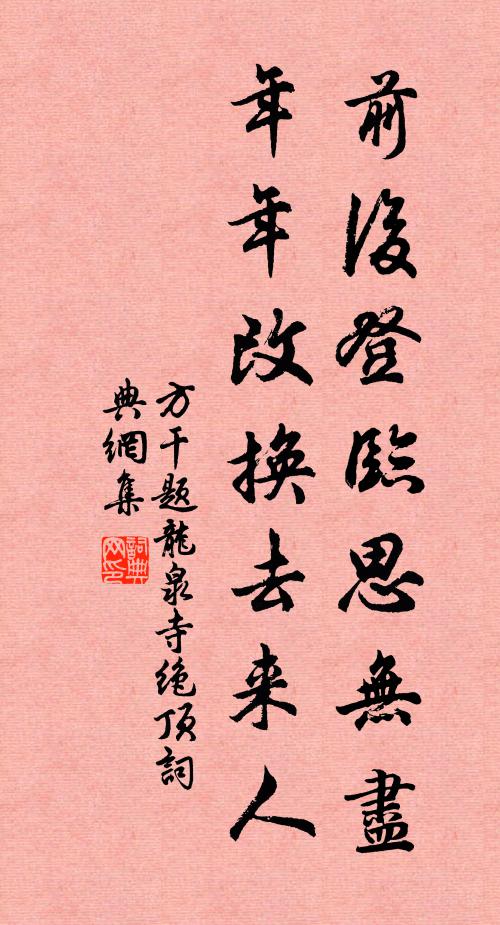 前後登臨思無盡
年年改換去来人
方干題龍泉寺绝顶詞
典網集
詞典
网印